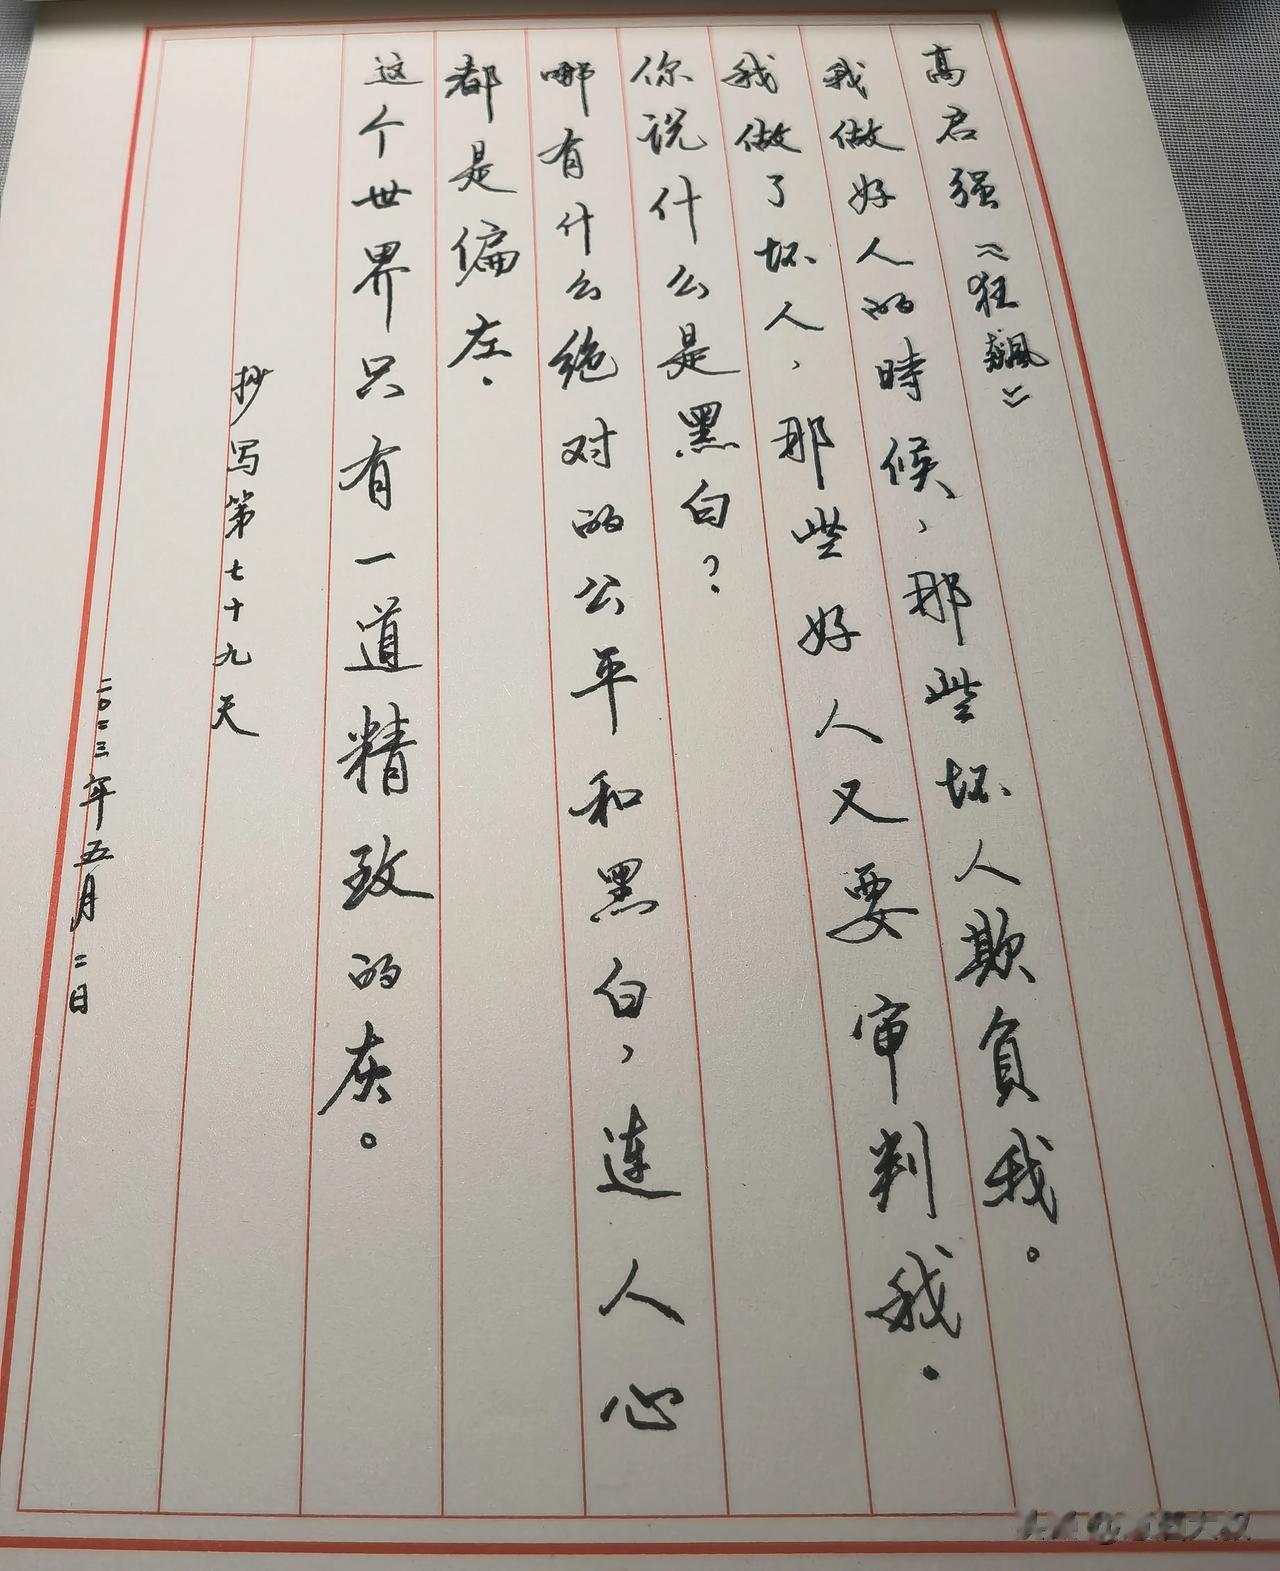 高启强《狂飙》
我做好人的時候，那些坏人欺負我。
我做了坏人，那些好人又要审判我。
你说什么是黑白？
哪有什么绝对的公平和黑白，连人心
都是偏左.
这个世界只有一道精致的灰。
抄写第七十九天
二〇二三年五月二日